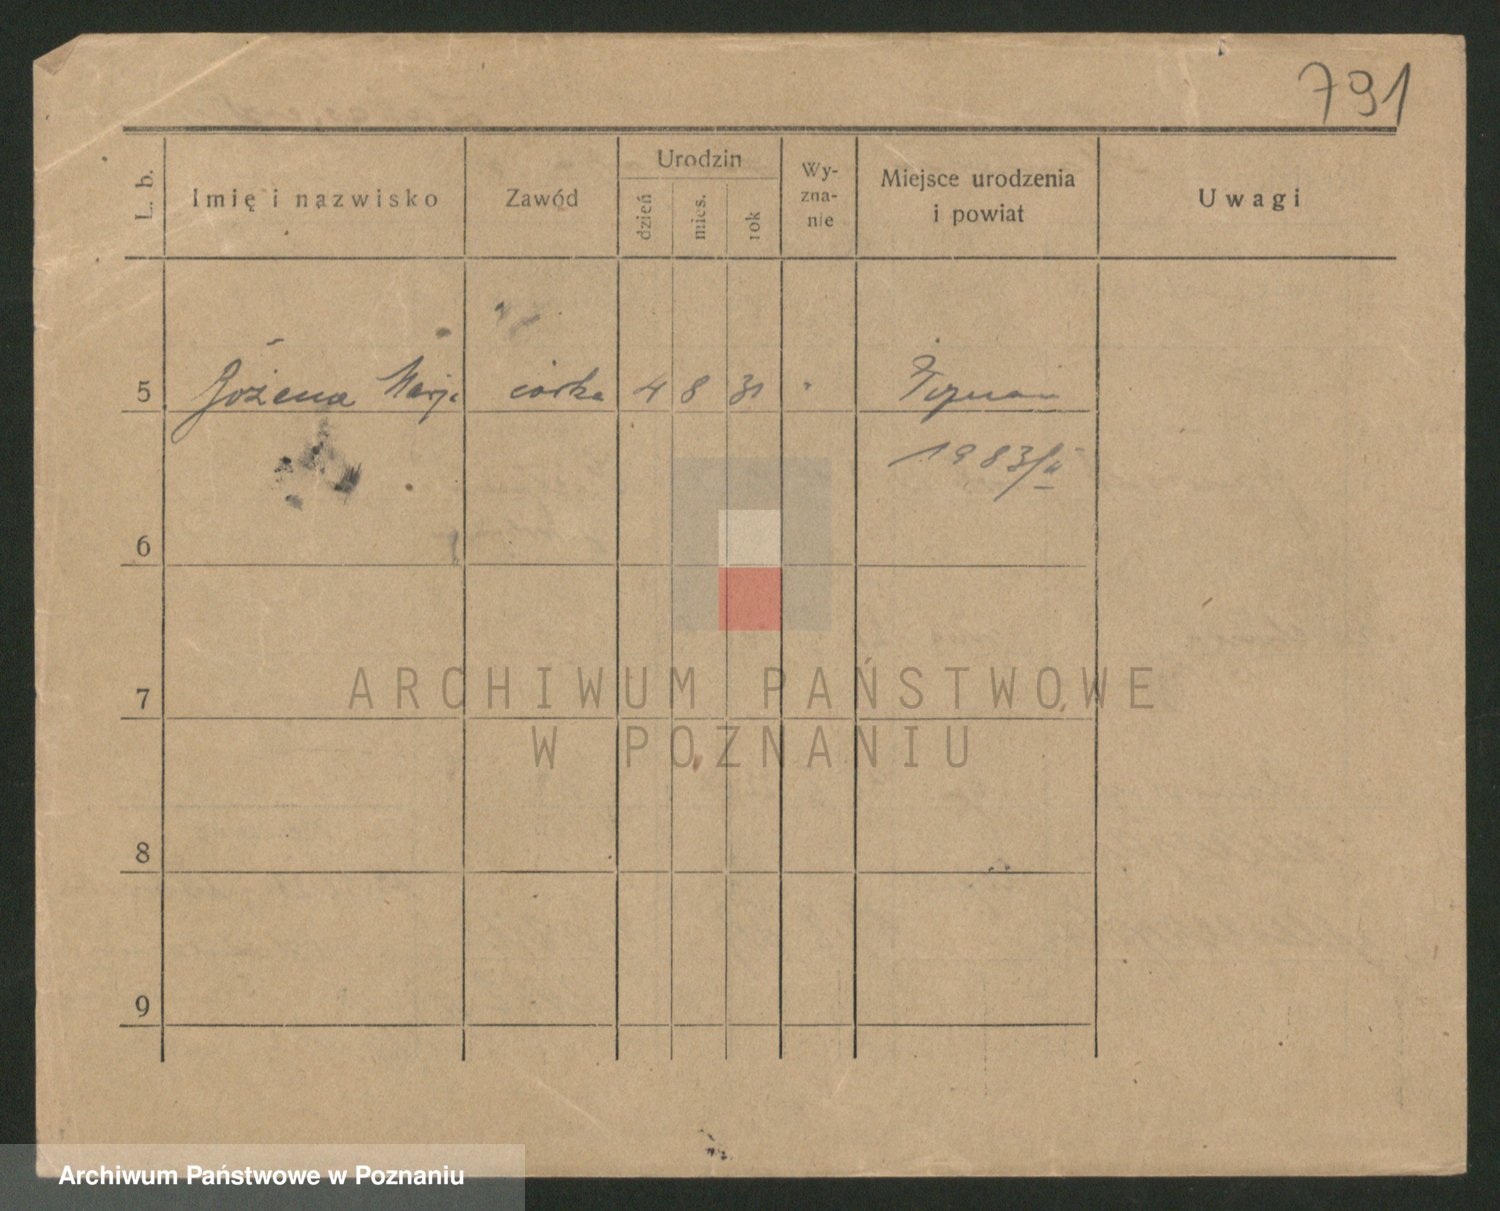 791
L. b.
Imię i nazwisko
Zawód
Urodzin
dzień
mies.
rok
Wy-
zna-
nie
Miejsce urodzenia
i powiat
Uwagi
5 Bożena Marja córka 4 8 31 " Poznań
1983/II
6
7
ARCHIWUM PAŃSTWOWE
W POZNANIU
8
9
Archiwum Państwowe w Poznaniu